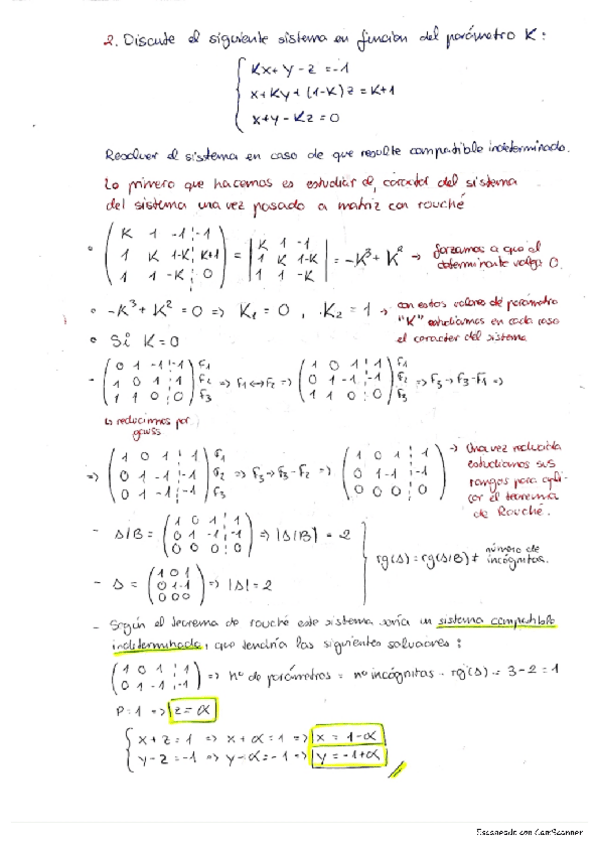 2. Discute el siguiente sistema en función del parámetro K:
Kx + y - z = -1
x + Ky + (1-K)z = K+1
x + y - Kz = 0
Resolver el sistema en caso de que resulte compatible indeterminado.
Lo primero que hacemos es estudiar el carácter del sistema
del sistema una vez pasado a matriz con rouché
K 1 -1 | -1
1 K 1-K | K+1
1 1 -K | 0
=
K 1 -1
1 K 1-K
1 1 -K
= -K³ + K² → forzamos a que el
determinante valga 0.
• -K³ + K² = 0 => K₁ = 0 , K₂ = 1 → con estos valores de parámetro
"K" estudiamos en cada caso
el caracter del sistema
• Si K = 0
- (0 1 -1 | -1) F1
(1 0 1 | 1) F2
(1 1 0 | 0) F3
=> F1 <-> F2 =>
(1 0 1 | 1) F1
(0 1 -1 | -1) F2
(1 1 0 | 0) F3
=> F3 → F3 - F1 =>
↳ reducimos por
gauss
=> (1 0 1 | 1) F1
(0 1 -1 | -1) F2
(0 1 -1 | -1) F3
=> F3 → F3 - F2 =>
(1 0 1 | 1)
(0 1 -1 | -1)
(0 0 0 | 0)
→ Una vez reducida
estudiamos sus
rangos para apli-
car el teorema
de Rouché.
- A/B = (1 0 1 | 1)
(0 1 -1 | -1)
(0 0 0 | 0)
=> |A/B| = 2
- A = (1 0 1)
(0 1 -1)
(0 0 0)
=> |A| = 2
rg(A) = rg(A/B) ≠ número de
incógnitas.
- Según el teorema de rouché este sistema sería un sistema compatible
indeterminado, que tendría las siguientes soluciones:
(1 0 1 | 1)
(0 1 -1 | -1)
=> nº de parámetros = nº incógnitas - rg(A) = 3 - 2 = 1
P = 1 => z = α
x + z = 1 => x + α = 1 => x = 1 - α
y - z = -1 => y - α = -1 => y = -1 + α
Escaneado con CamScanner